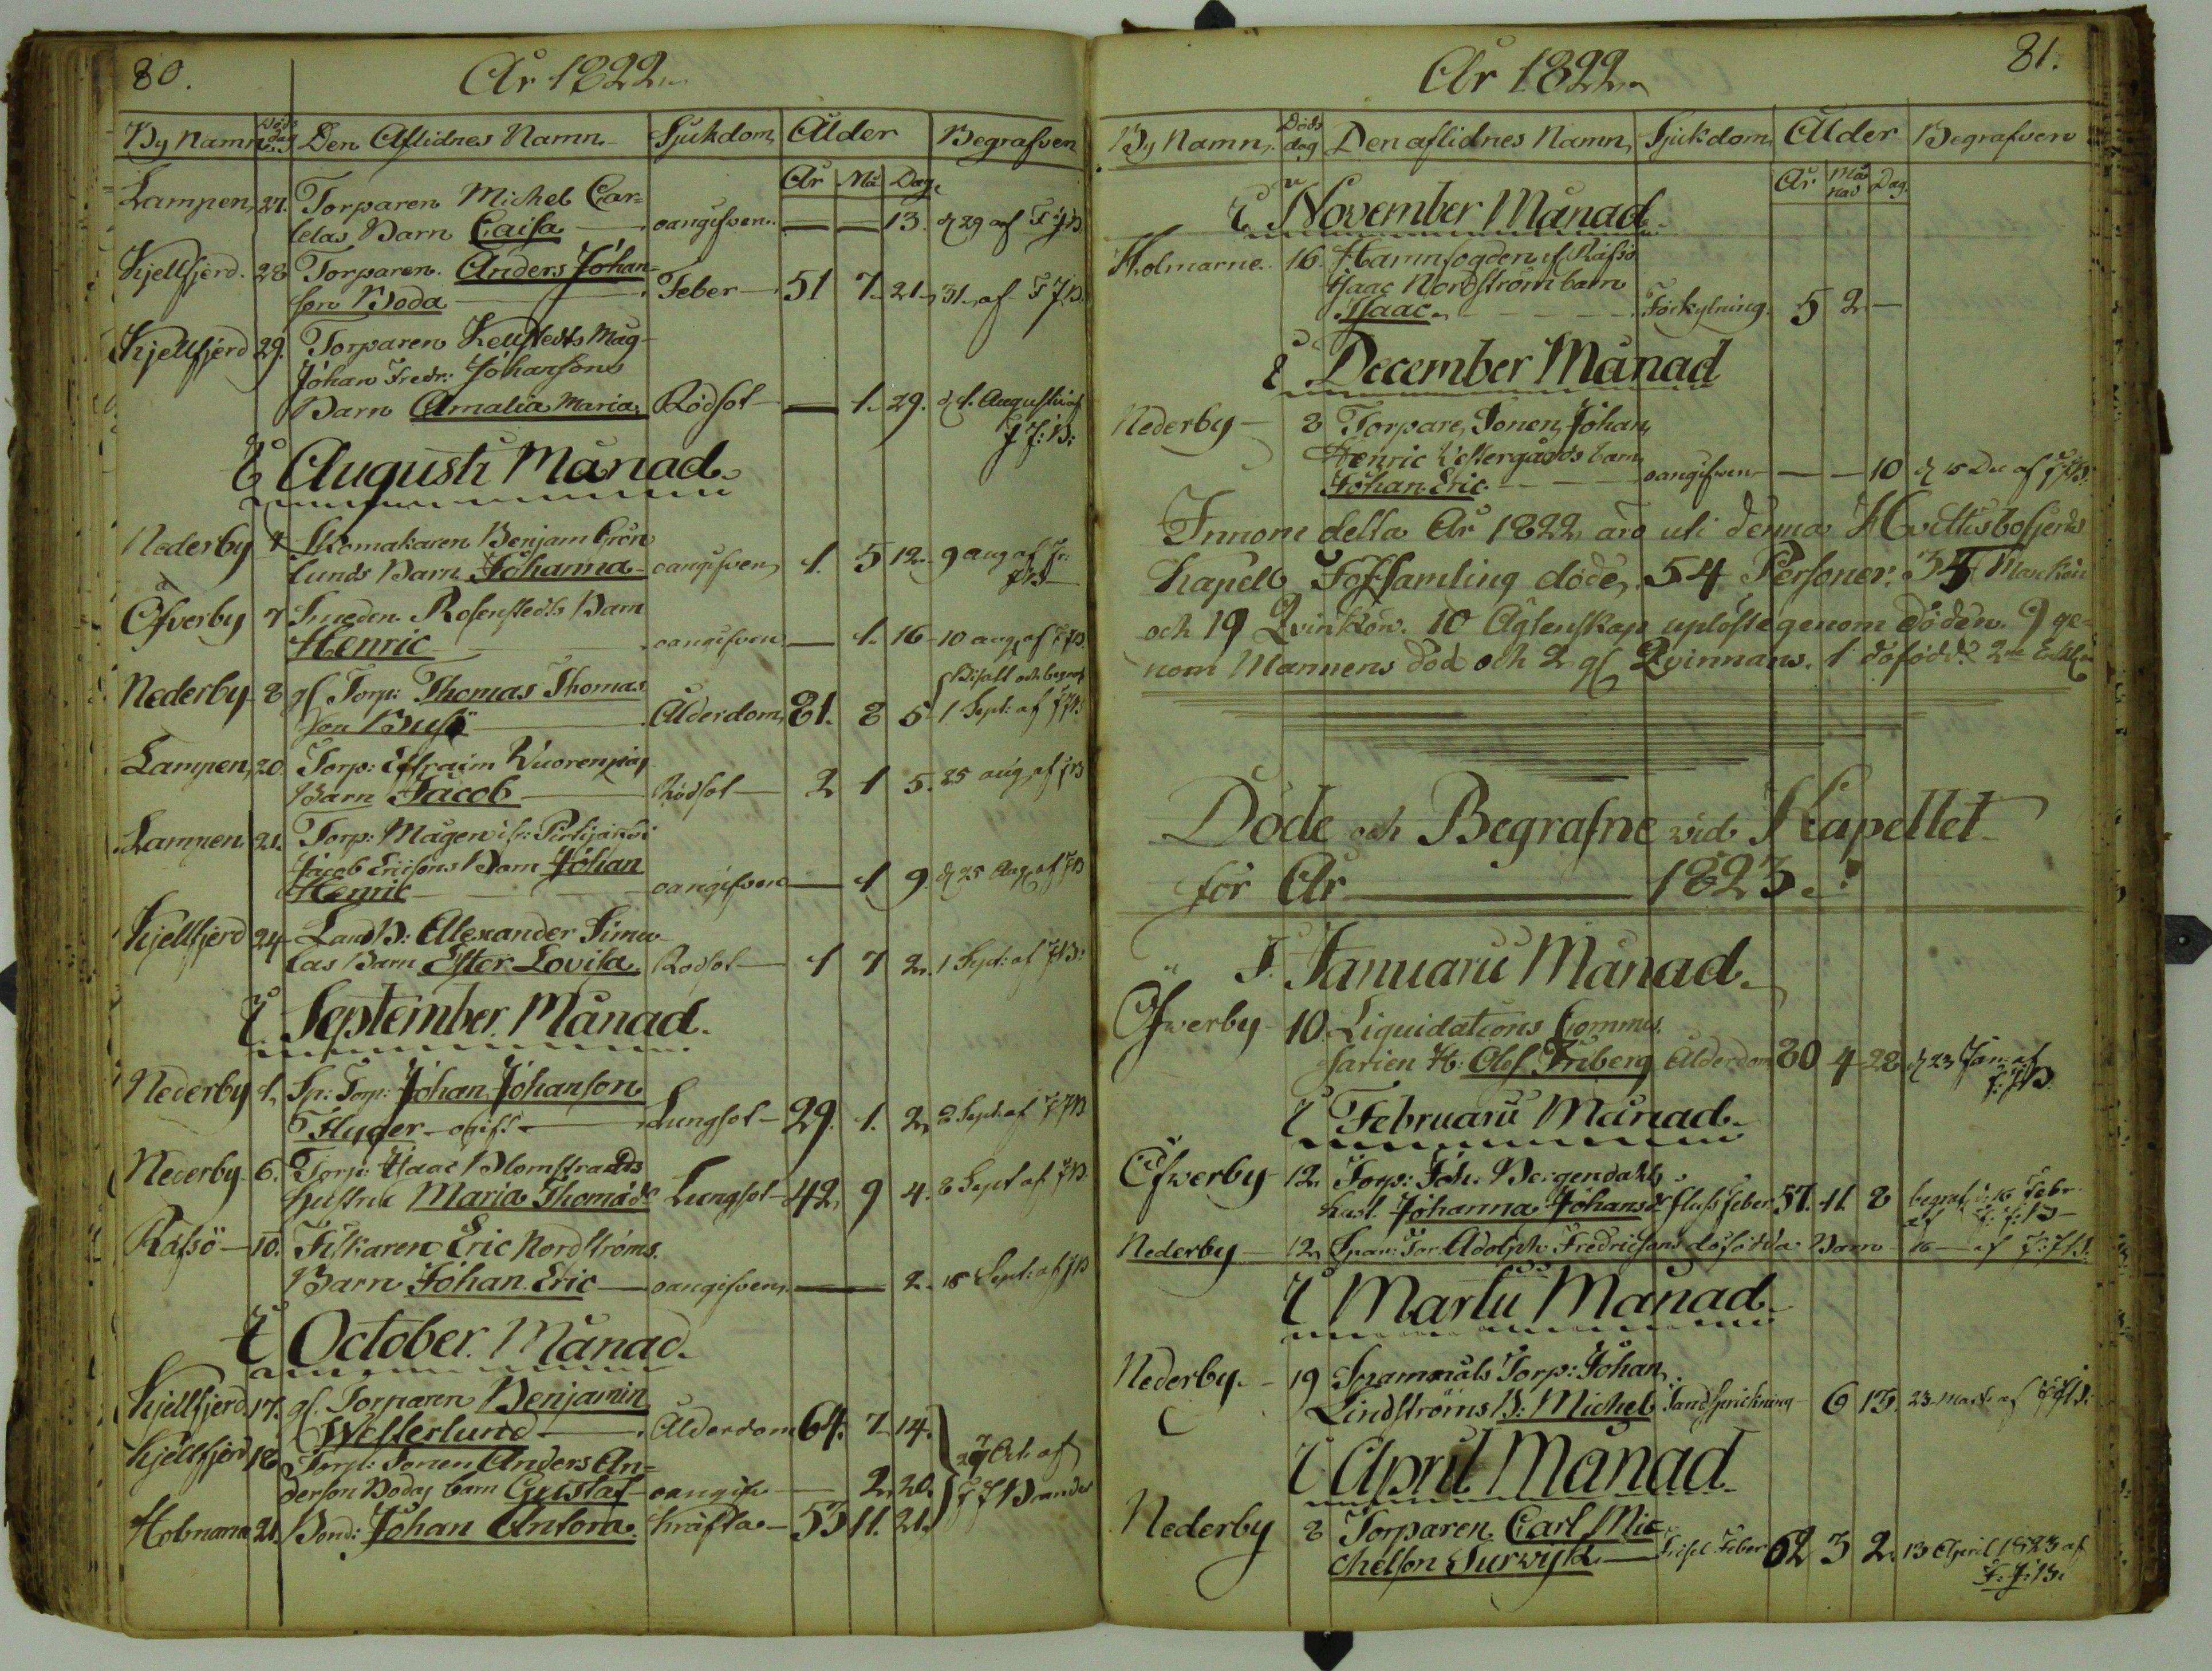 80.
År 1822
By Namn Döds dag Den Aflidnes Namn Sjukdom Ålder Begrafven
År Må Dag.
Lampen 27. Torparen Michel Car=
lelas Barn Caisa oangifven — — 13. d 29 af F J B.
Kjellfjerd. 28 Torparen Anders Johan=
son Boda Feber 51 7 21 31 af F J B.
Kjellfjerd 29. Torparen Kellstedts Måg
Johan Fredr: Johansons
Barn Amalia Maria Rödsot — 1. 29. d 1. Augusti af
F J: B:
I Augusti Månad.
Nederby 1 Skomakaren Benjam Grön
lunds Barn Johanna oangifven 1. 5 12. 9 aug af F:
J B
Öfverby 7 Smeden Rosenstedts Barn
Henric oangifven — 1. 16 10 aug af F J B.
Nederby 8 gl Torp: Thomas Thomas
son Busk Ålderdom 81. 8 5 1 Sept: af F J B
Lampen 20. Torp: Effraim Wuorenpäs
Barn Jacob Rödsot 2 1 5. 25 aug af J B
Lampen 21. Torp: Mågen
Jacob Ericsons Barn Johan
Henric oangifven — 1 9. d 25 Aug af J B
Kjellfjerd 24 Land B: Alexander Simu
las Barn Ester Lovisa Rödsot 1 7 2. 1 Sept: af J B:
I September Månad.
Nederby 1. Sp: Torp: Johan Johanson
Flyger ogift Lungsot 29. 1. 2. 8 Sept af F J B
Nederby 6. Torp: Isaac Blomstrands
hustru Maria Thomasd: Lungsot 42. 9 4. 8 Sept af J B.
Räfsö 10. Fiskaren Eric Nordströms
Barn Johan Eric oangifven — 2. 15 Sept: af J B
I October Månad.
Kjellfjerd 17. gl. Torparen Benjamin
Westerlund Ålderdom 64. 7 14.
Kjellfjerd 18 Torp: Sonen Anders An=
derson Bodas barn Gustaf oangifv — 2. 20. 27 Oct. af
F J Brander
Holmarna 21. Bond: Johan Antora Kräfta 53 11. 21.
81.
År 1822
By Namn, Döds dag Den aflidnes Namn, Sjukdom, Ålder Begrafven
År Må nad Dag.
I November Månad
Holmarne. 16. Hamnfogden af Räfsö
Isaac Nordström barn
Isaac Förkylning. 5 2. —
I December Månad
Nederby 8 Torpare, Sonen, Johan,
Henric Westergårds barn
Johan Eric oangifven — — 10 d 15 Dec af F J B.
Innom detta År 1822 äro uti denna Hvittisbofjerds
Kapell Församling döde, 54 Personer. 35 Mankön
och 19 Qvinkön. 10 Ägtenskap uplöste genom döden 9 ge=
nom Mannens död och 2 gl Qvinnans. 1 döfödd
Döde och Begrafne vid Kapellet
för År 1823.
I. Januarii Månad.
Öfwerby 10. Liquidations Commis
sarien H: Olof Friberg Ålderdom 80 4 28 d 23 Jan: af
F: J B.
I Februarii Månad.
Öfwerby 12. Torp: Joh. Bergendahls
hust. Johanna Johansd Flussfeber 57. 11. 8 begraf: d: 16 Febr
af F: J: B
Nederby 12. Span: Tor. Adolph Fredricsons döfödda Barn 16 af F: J B.
I Martii Månad
Nederby. 19 Spannmåls Torp: Johan,
Lindströms B: Michel 6 13. 23. Marti af F J B.
I April Månad
Nederby 8 Torparen Carl Mic
chelson Surwijk Frisel Feber 62 3 2. 13 April 1823 af
F. J: B.